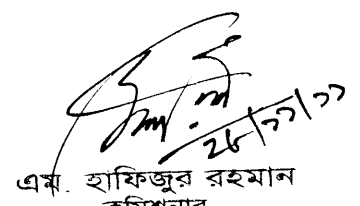 ২৮/১১/১১
এম. হাফিজুর রহমান
কমিশনার